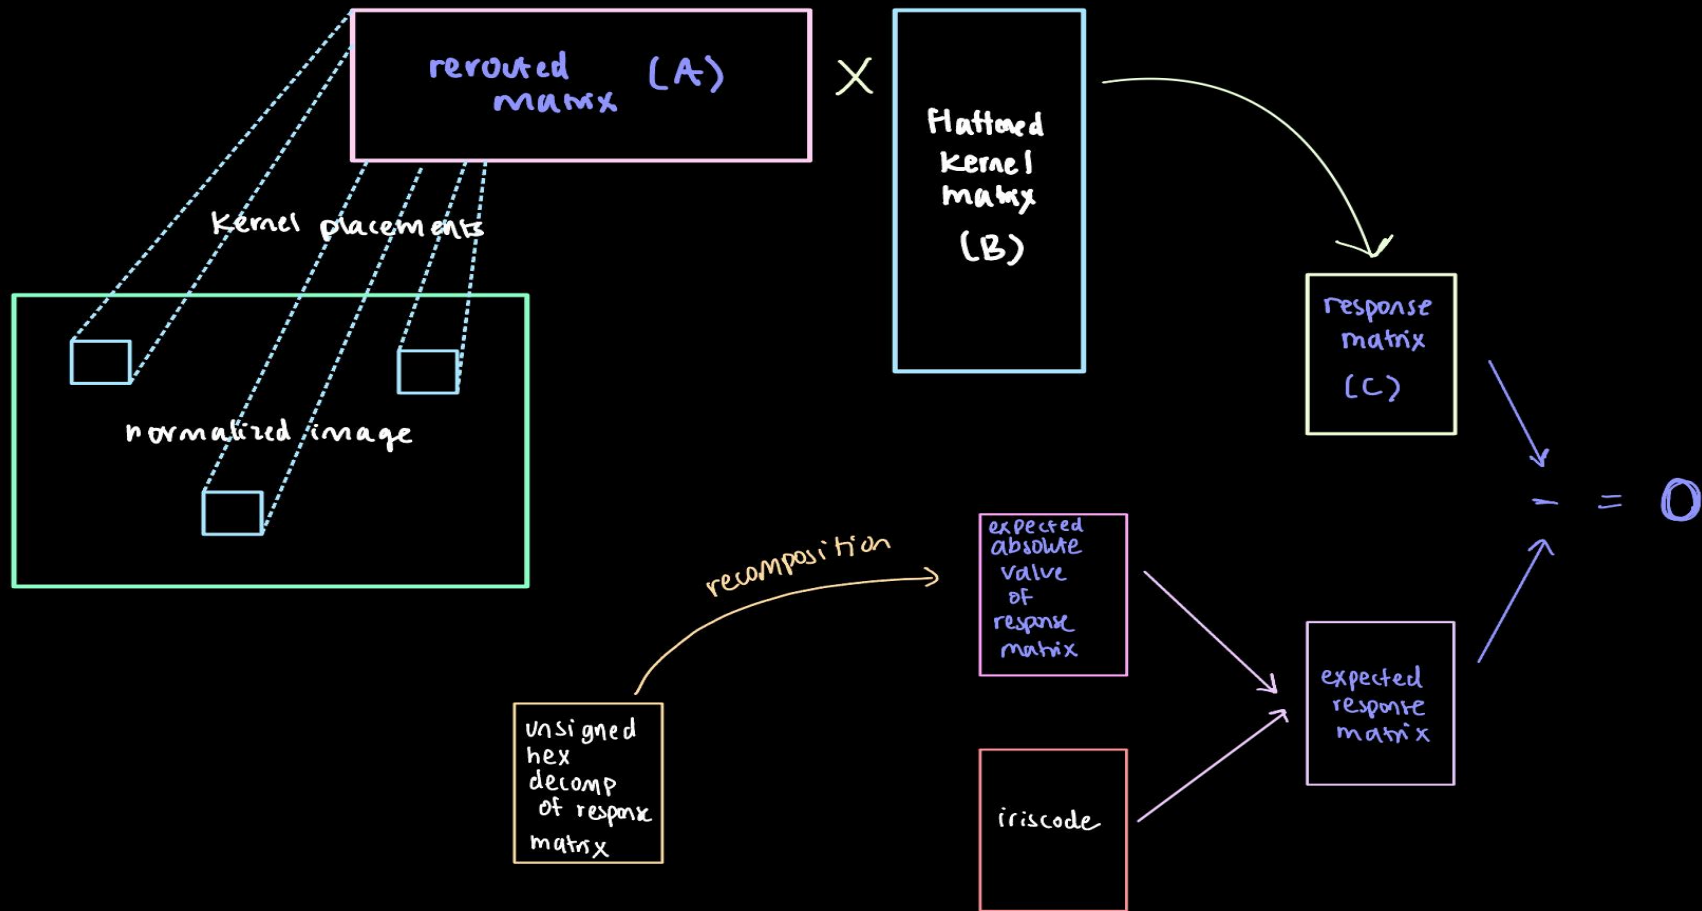 rerouted (A)
matrix
X
Flattened
kernel
matrix
(B)
Kernel placements
normalized image
response
matrix
(C)
- = 0
recomposition
expected
absolute
value
of
response
matrix
unsigned
hex
decomp
of response
matrix
iriscode
expected
response
matrix